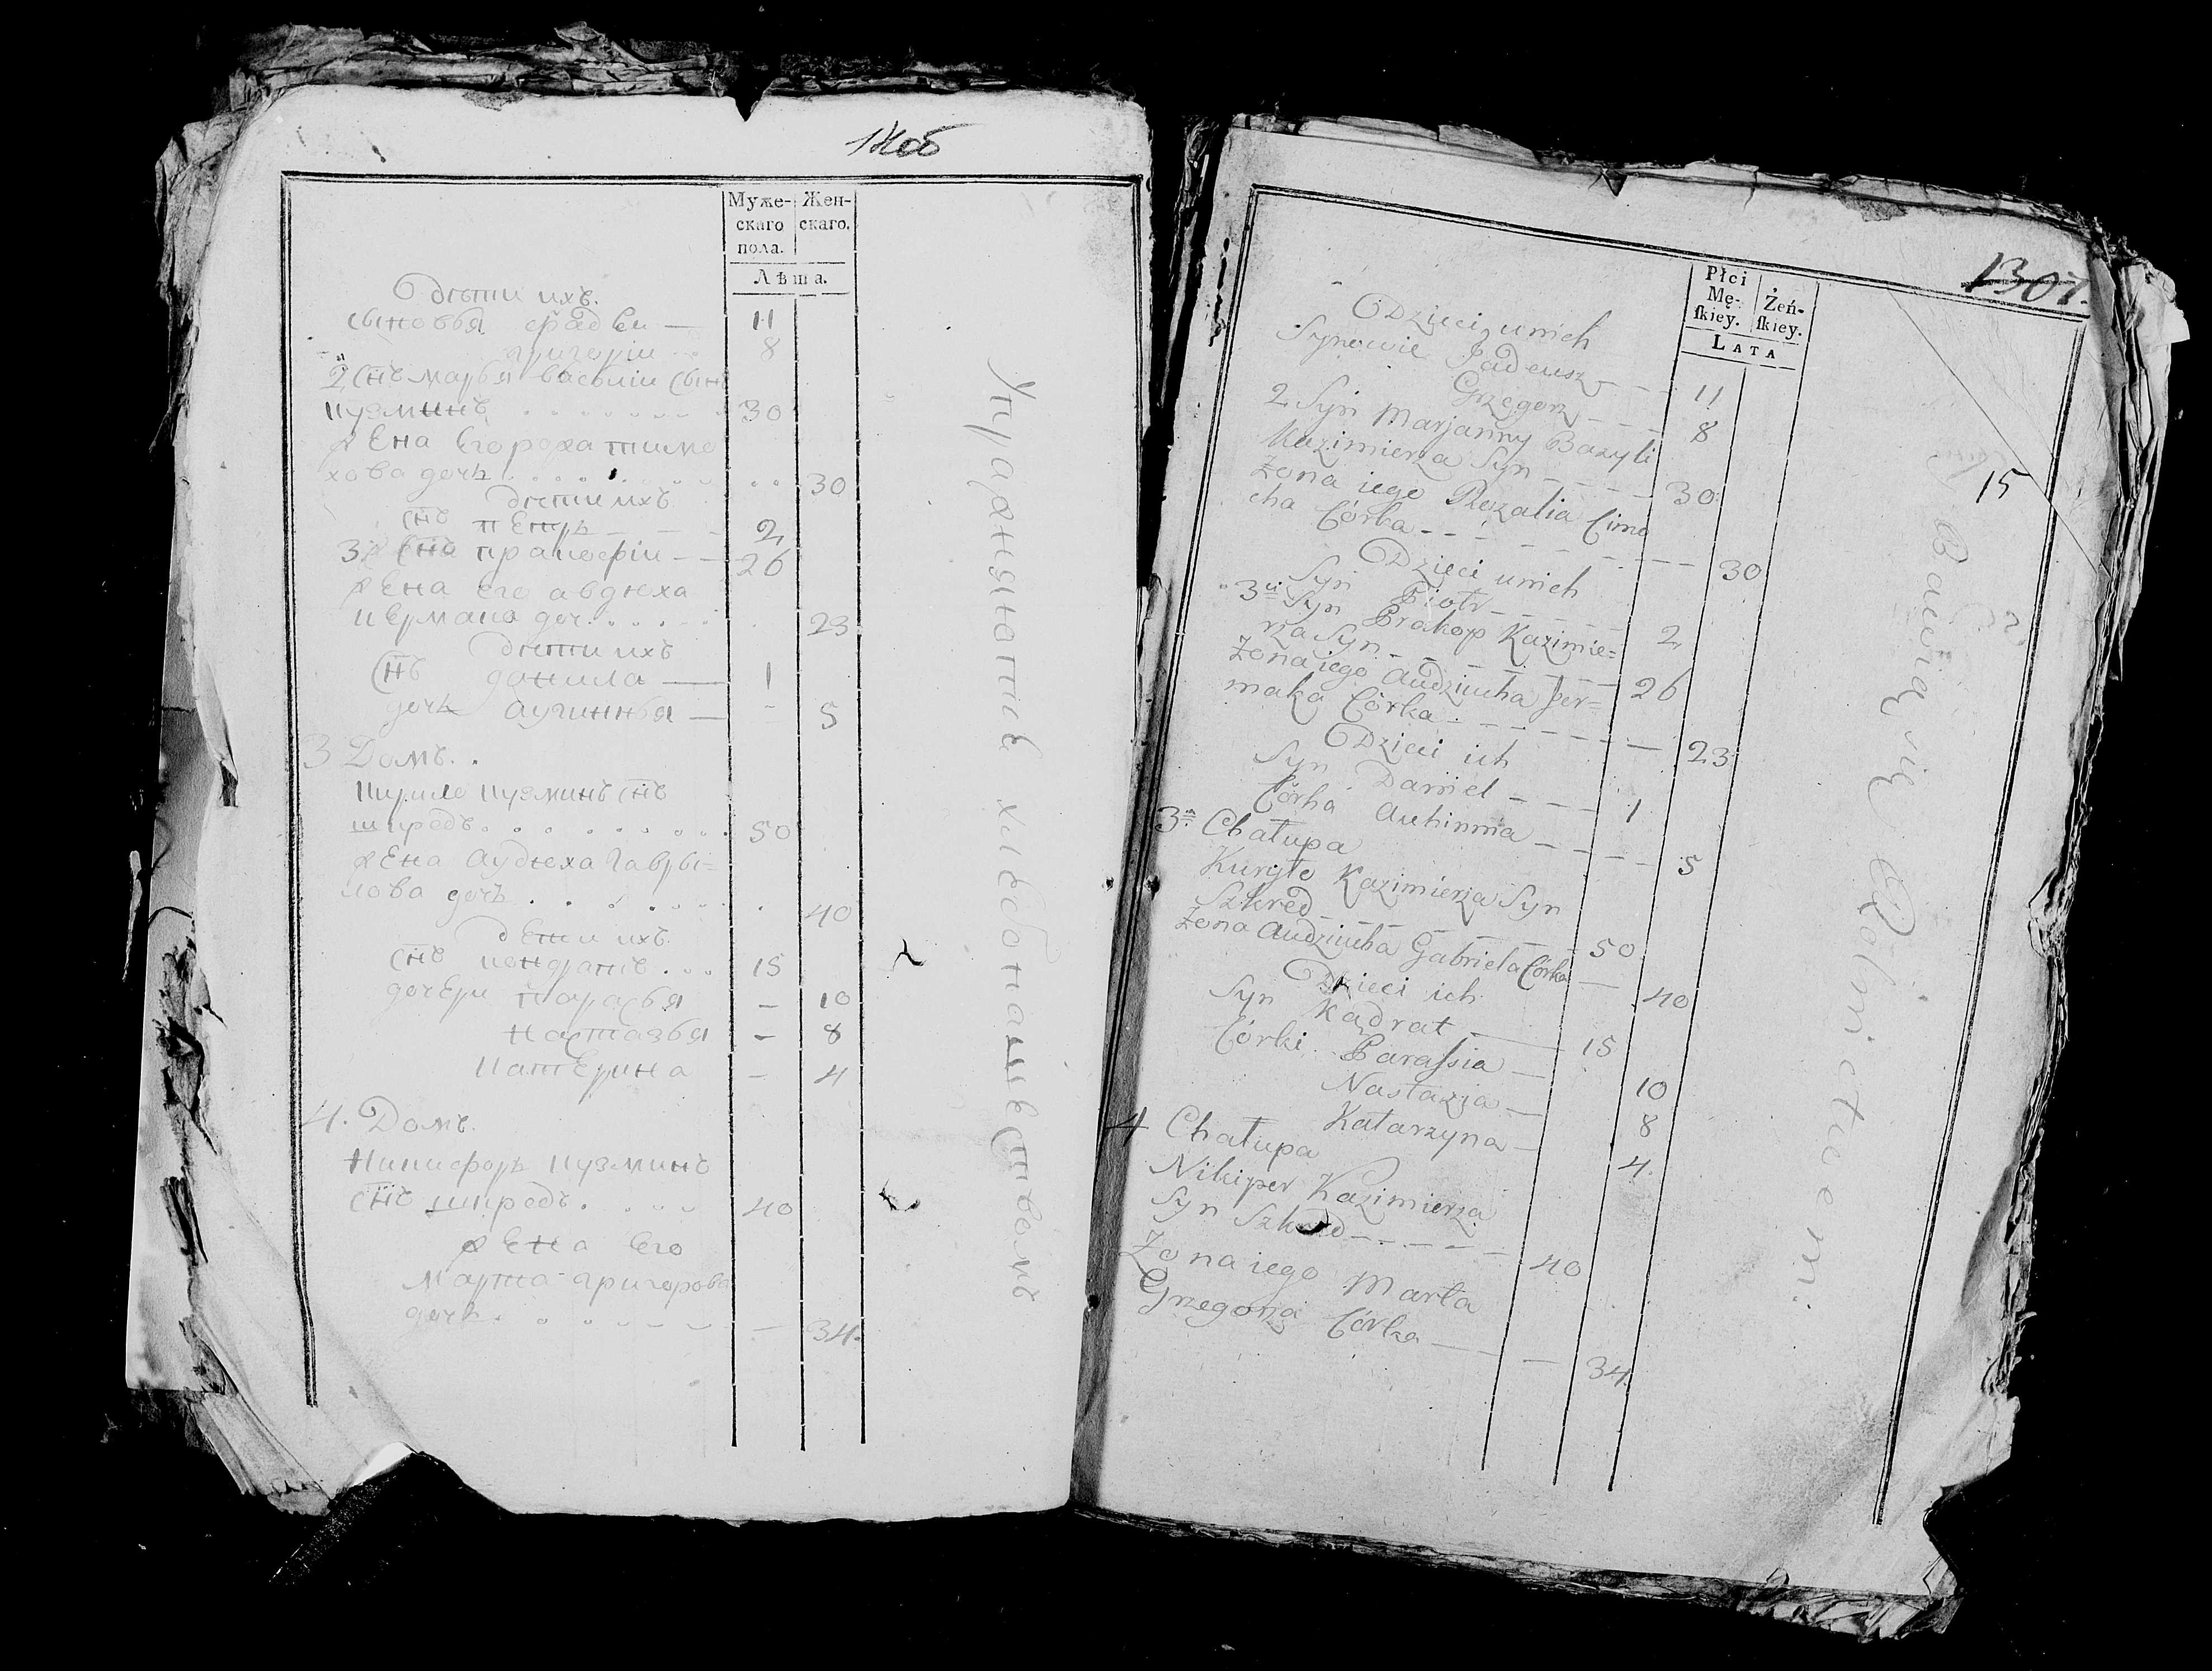 Муже-
скаго
пола.
Жен-
скаго.
Лѣта.
дѣти ихъ.
сыновья фадеи — 11
григоріи 8
2й снъ марьи василіи сынъ
кузминъ 30
жена его роха тимо
хова дочь 30
дѣти ихъ
снъ петръ 2
3й снъ прокофіи — 26
жена его авдюха
иермака доч. 23
дѣти ихъ
снъ данила — 1
дочь аугиннья — 5
3 Домъ.
курило кузминъ снъ
шкредъ 50
жена аудюха гавры=
лова дочь 40
дети ихъ
снъ кондратъ 15
дочери парасья — 10
настазья — 8
катерина — 4
4. Домъ.
никифоръ кузминъ
снъ шкредъ 40
жена его
марта григорова
дочь 34.
Упражняются хлебопашествомъ
1307.
15
Płci
Mę-
ſkiey.
Żeń-
ſkiey.
LATA
Dzieci u nich
Synowie Tadeusz — 11
Grzegorz — 8
2. Syn Marjanny Bazyli
Kazimierza Syn — 30
Żona iego Rozalia Cimo
cha Córka — 30
Dzieci u nich
Syn Piotr — 2
3ci Syn Prokop Kazimie=
rza Syn — 26
Żona iego Audziucha Jer=
maka Córka — 23
Dzieci ich
Syn Daniel — 1
Córka Auhinnia — 5
3a Chałupa
Kuryło Kazimierza Syn
Szkred — 50
Żona Audziucha Gabriela Córka — 40
Dzieci ich
Syn Kądrat — 15
Córki Paraſsia — 10
Nastazja — 8
Katarzyna — 4.
4 Chałupa
Nikiper Kazimierza
Syn Szkred — 40
Żona iego Marta
Grzegorza Córka — 34.
Bawią się Rolnictwem.